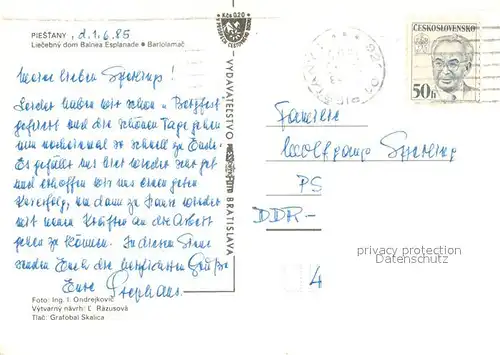 PIEŠŤANY, d. 1.6.85
Liečebný dom Balnea Esplanade • Barlolamač
Meine lieben Sperlings!
Leider haben wir schon "Bergfest"
gefeiert und die schönen Tage gehen
nun nocheinmal so schnell zu Ende.
Es gefällt uns hier wieder sehr gut
und erhoffen wir uns einen guten
Kurerfolg, um dann zu Hause wieder
mit neuen Kräften an die Arbeit
gehen zu können. In diesem Sinne
senden Euch die herzlichsten Grüße
Eure Stephans.
Foto: Ing. I. Ondrejkovič
Výtvarný návrh: E. Rázusová
Tlač: Grafobal Skalica
Kčs 0,20
VYDAVATEĽSTVO
BRATISLAVA
ČESKOSLOVENSKO
50h
921 01
Familie
Wolfgang Sperling
PS
DDR-
4
privacy protection
Datenschutz